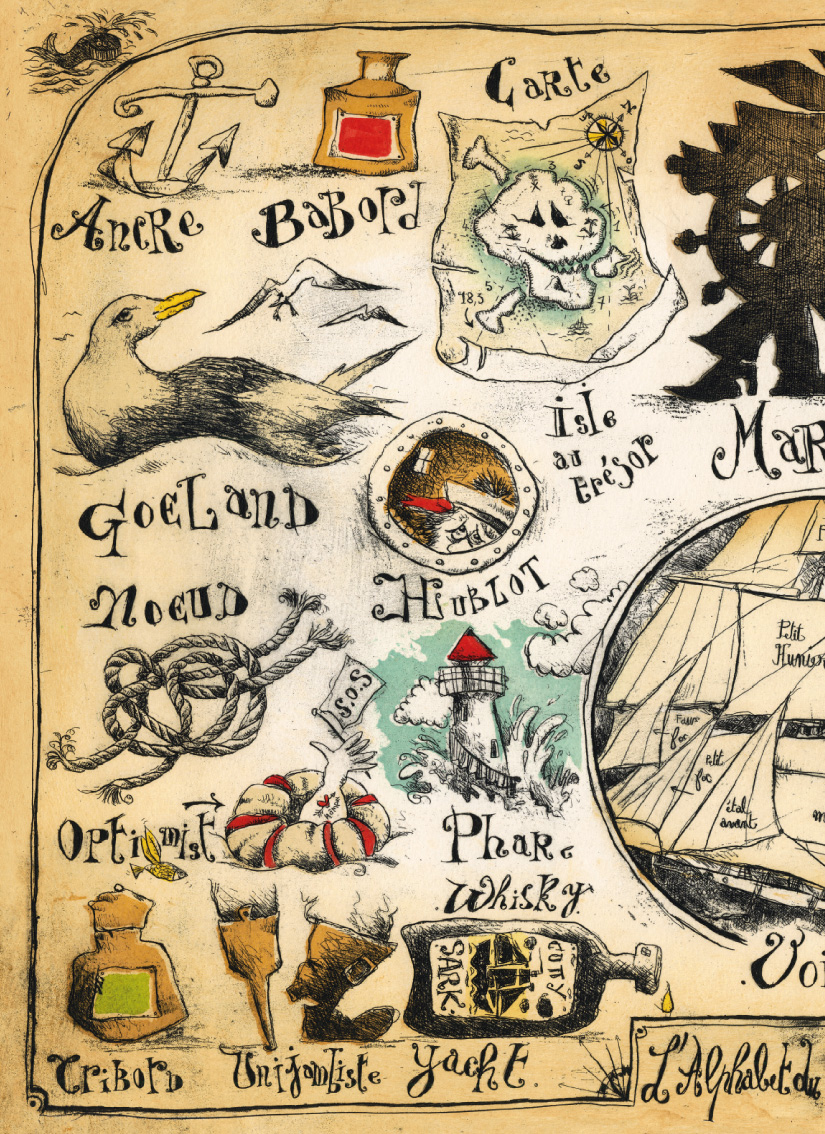 Carte
Ancre
Babord
N
S
3
5
18,5
7
Isle
au
trésor
Mar
Goeland
Hublot
Noeud
S.O.S
Optimist
Phare
Petit
Hunier
Faux
foc
Petit
foc
étai
avant
Whisky
CUTTY
SARK
Voi
Tribord
Unijambiste
Yacht.
L'Alphabet du